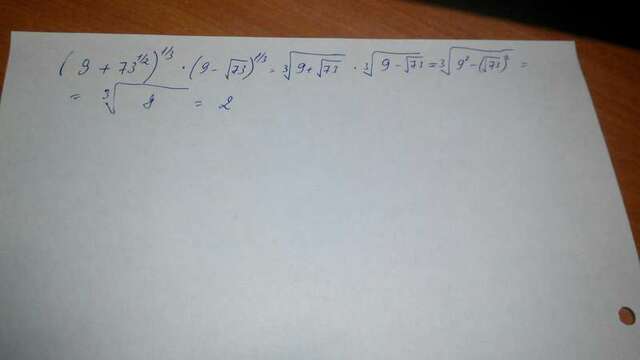 (9 + 73^{1/2})^{1/3} · (9 - √73)^{1/3} = ∛(9+√73) · ∛(9-√73) = ∛(9² - (√73)²) =
= ∛8 = 2